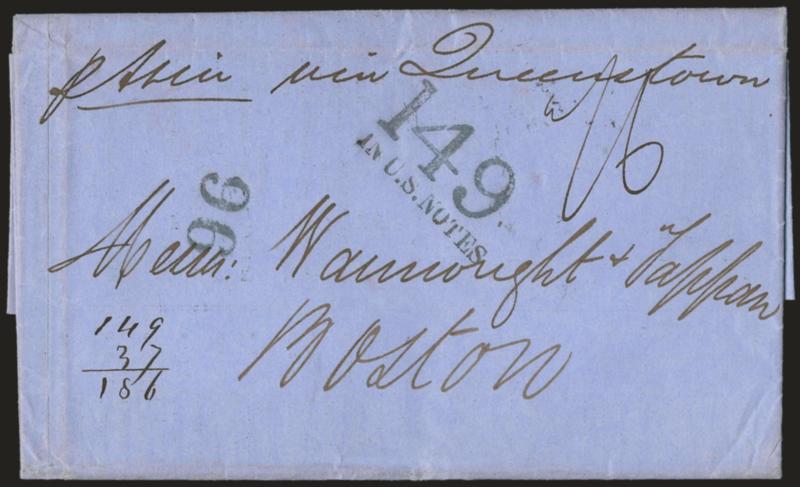 p Asia via Queenstown
149
IN U.S. NOTES
96
Messrs: Wainwright & Tappan
Boston
149
37
186